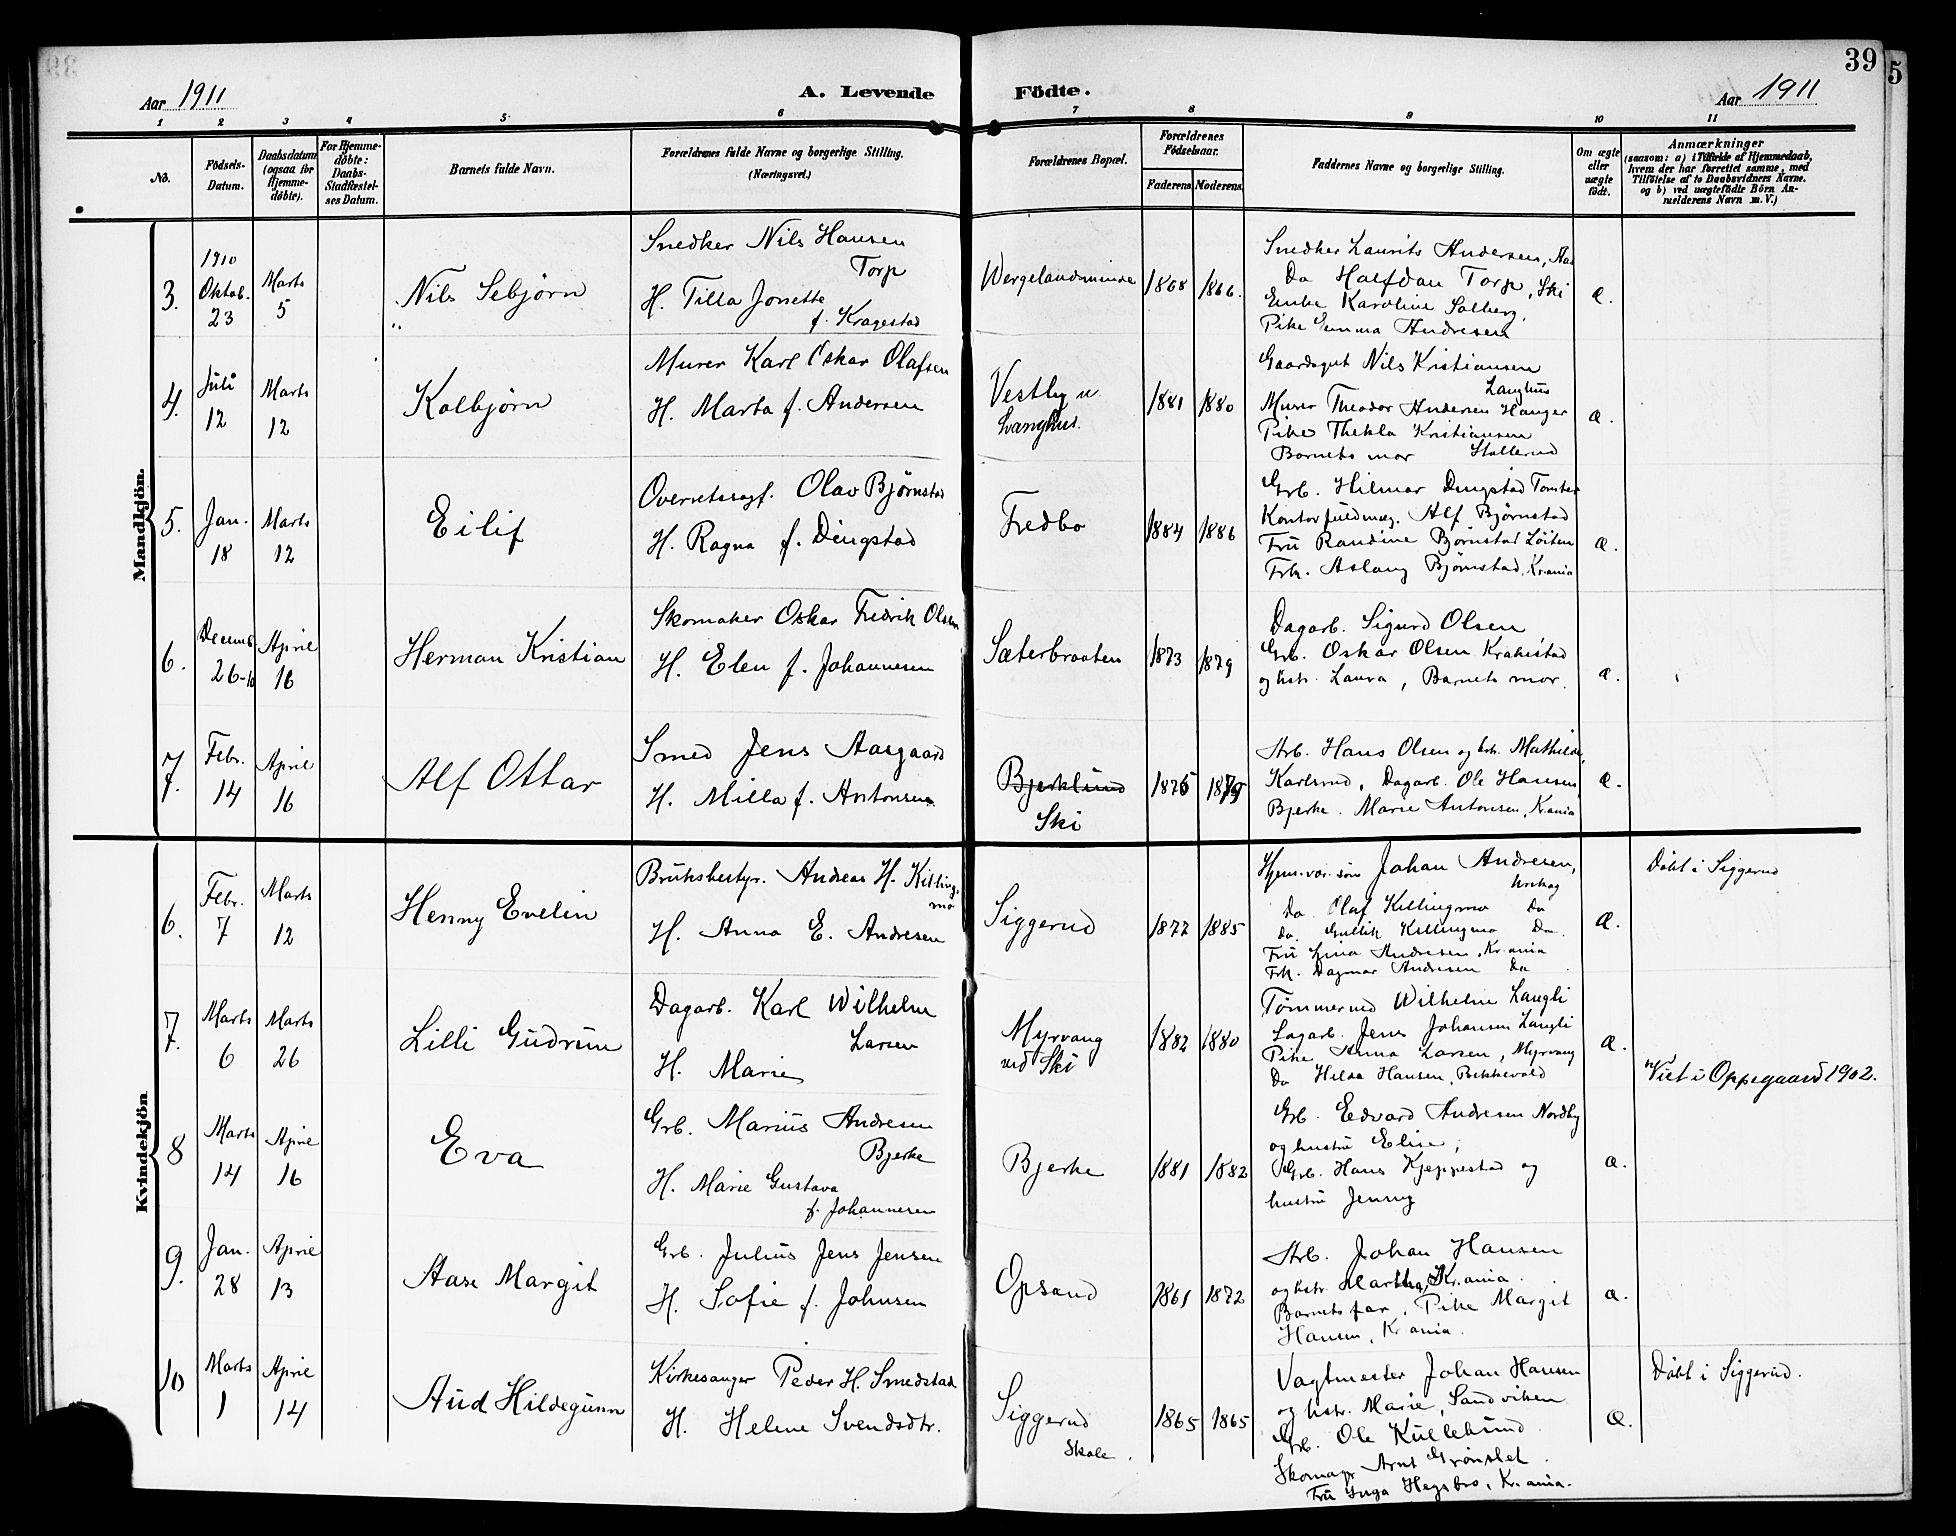 39
5
Aar 1911
A. Levende
Födte.
Aar 1911
1 2 3 4 5 6 7 8 9 10 11
No.
Födsels-
Datum.
Daabsdatum
(ogsaa for
Hjemme-
döbte).
For Hjemme-
döbte:
Daabs-
Stadfæstel-
ses Datum.
Barnets fulde Navn.
Forældrenes fulde Navne og borgerlige Stilling.
(Næringsvei.)
Forældrenes Bopæl.
Forældrenes
Födselsaar.
Faderens. Moderens.
Faddernes Navne og borgerlige Stilling.
Om ægte
eller
uægte
födt.
Anmærkninger
(saasom: a) i Tilfælde af Hjemmedaab,
hvem der har forrettet samme, med
Tilföielse af to Daabsvidners Navne.
og b) ved uægtefödte Börn An-
melderens Navn m. V.)
Mandkjön.
3.
1910
Oktob.
23
Marts
5
Nils Sebjørn
Snedker Nils Hansen
Torp
H. Tilla Jonette
f. Kragestad
Wergelandsminde
1868
1866.
Snedker Laurits Andersen, Aas
Do Halfdan Torp, Ski
Enke Karoline Solberg,
Pike Emma Andresen
æ.
4.
Juli
12
Marts
12
Kolbjørn
Murer Karl Oskar Olafsen
H. Marta f. Andersen
Vestby v
Langhus.
1881
1880
Gaardsgut Nils Kristiansen
Langhus
Murer Theodor Andersen Hauger
Pike Thekla Kristiansen
Barnets mor Stallerud
æ.
5.
Jan.
18
Marts
12
Eilif
Overretssagf. Olav Bjørnstad
H. Ragna f. Dingstad
Fredbo
1884
1886
Grb. Hilmar Dingstad Tomter
Kontorfuldmæg. Alf Bjørnstad
Fru Randine Bjørnstad Løiten
Frk. Aslaug Bjørnstad, Kr.ania
æ.
6.
Decemb
26-10
April
16
Herman Kristian
Skomaker Oskar Fredrik Olsen
H. Elen f. Johannesen
Sæterbraaten
1873
1879
Dagarb. Sigurd Olsen
Grb. Oskar Olsen Krakestad
og hstr. Laura, Barnets mor.
æ.
7.
Febr.
14
April
16
Alf Ottar
Smed Jens Aasgaard
H. Milla f. Antonsen
Bjerklund
Ski
1876
1879
Arb. Hans Olsen og hstr. Mathilde,
Karlsrud, Dagarb. Ole Hansen
Bjerke. Marie Antonsen, Kr.ania
æ.
Kvindekjön
6.
Febr.
7
Marts
12
Henny Evelin
Bruksbestyr. Andreas H. Killing-
mo
H. Anna E. Andresen
Siggerud
1877
1885
Hjem.vær. søn Johan Andresen,
Do Olaf Killingmo Do
Do. Gullik Killingmo Do.
Fru Lina Andresen, Kr.ania
Frk. Dagmar Andresen Do
æ.
Døbt i Siggerud
7.
Marts
6
Marts
26
Lilli Gudrun
Dagarb. Karl Wilhelm
Larsen
H. Marie
Myrvang
ved Ski
1882
1880
Tømmermd Wilhelm Langli
Sagarb. Jens Johansen Langli
Pike Anna Larsen, Myrvang
Do Hilda Hansen, Bekkevold
æ.
Viet i Oppegaard 1902.
8
Marts
14
April
16
Eva
Grb. Marius Andresen
Bjerke
H. Marie Gustava
f. Johannesen
Bjerke
1881
1882
Grb. Edvard Andresen Nordby
og hustru Elise,
Grb. Hans Kjeppestad og
hustru Jenny
æ.
9.
Jan.
28
April
13
Aase Margit
Grb. Julius Jens Jensen
H. Sofie f. Johnsen
Opsand
1861
1872
Arb. Johan Hansen
og hstr. Martha, Kr.ania.
Barnets far, Pike Margit
Hansen, Kr.ania.
æ.
10
Marts
1
April
14
Aud Hildegunn
Kirkesanger Peder H. Smedstad
H. Helene Svendsdtr.
Siggerud
Skole.
1865
1865
Vagtmester Johan Hansen
og hstr. Marie, Sandviken
Grb. Ole Kullebund
Skomagr Arnt Grønslet.
Fru Inga Hegsbro, Kr.ania.
æ.
Døbt i Siggerud.